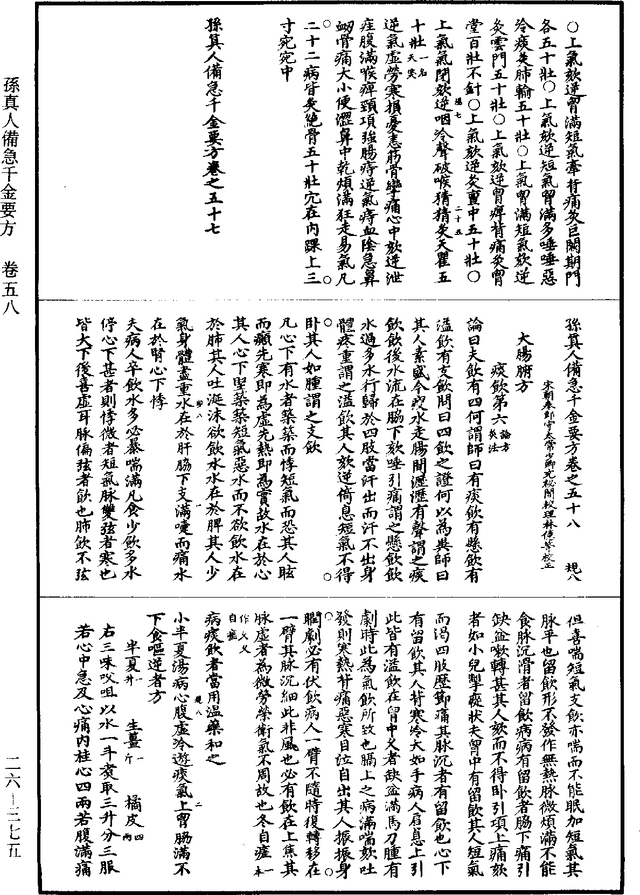 孫真人備急千金要方　卷五八
〇上氣欬逆胷滿短氣牽背痛灸巨闕期門
各五十壯〇上氣欬逆短氣胷滿多唾唾惡
冷痰灸肺輸五十壯〇上氣胷滿短氣欬逆
灸雲門五十壯〇上氣欬逆胷痺背痛灸胷
堂百壯不針〇上氣欬逆灸亶中五十壯〇
上氣氣閉欬逆咽冷聲破喉猜猜灸天瞿五
十壯一名天突
逆氣虛勞寒損憂恚筋骨攣痛心中欬逆泄
注腹滿喉痺頸項強腸痔逆氣痔血陰急鼻
衂骨痛大小便澀鼻中乾煩滿狂走易氣凡
二十二病皆灸絕骨五十壯穴在內踝上三
寸宛宛中
孫真人備急千金要方卷之五十七
孫真人備急千金要方卷之五十八
宋朝奉郎守太常少卿充秘閣校理林億等校正
大腸腑方
痰飲第六論方灸法
論曰夫飲有四何謂師曰有痰飲有懸飲有
溢飲有支飲問曰四飲之證何以為異師曰
其人素盛今瘦水走腸間瀝瀝有聲謂之痰
飲飲後水流在脇下欬唾引痛謂之懸飲飲
水過多水行歸於四肢當汗出而汗不出身
體疼重謂之溢飲其人欬逆倚息短氣不得
臥其人如腫謂之支飲
凡心下有水者築築而悸短氣而恐其人眩
而癲先寒即為虛先熱即為實故水在於心
其人心下堅築築短氣惡水而不欲飲水在
於肺其人吐涎沫欲飲水水在於脾其人少
氣身體盡重水在於肝脇下支滿嚏而痛水
在於腎心下悸
夫病人卒飲水多必暴喘滿凡食少飲多水
停心下甚者則悸微者短氣脉雙弦者寒也
皆大下後喜虛耳脉偏弦者飲也肺飲不弦
但喜喘短氣支飲亦喘而不能眠加短氣其
脉平也留飲形不發作無熱脉微煩滿不能
食脉沉滑者留飲病病有留飲者脇下痛引
缺盆嗽轉甚其人欬而不得臥引項上痛欬
者如小兒掣瘲狀夫胷中有留飲其人短氣
而渴四肢歷節痛其脉沉者有留飲也心下
有留飲其人背寒冷大如手病人肩息上引
此皆有溢飲在胷中久者缺盆滿馬刀腫有
劇時此為氣飲所致也膈上之病滿喘欬吐
發則寒熱背痛惡寒目泣自出其人振振身
瞤劇必有伏飲病人一臂不隨時復轉移在
一臂其脉沉細此非風也必有飲在上焦其
脉虛者為微勞榮衛氣不周故也冬自瘥一本作久久自瘥
病痰飲者當用温藥和之
小半夏湯病心腹虛冷遊痰氣上胷脇滿不
下食嘔逆者方
半夏一升　生薑一斤　橘皮四兩
右三味㕮咀以水一斗煑取三升分三服
若心中急及心痛內桂心四兩若腹滿痛
二六—三七五